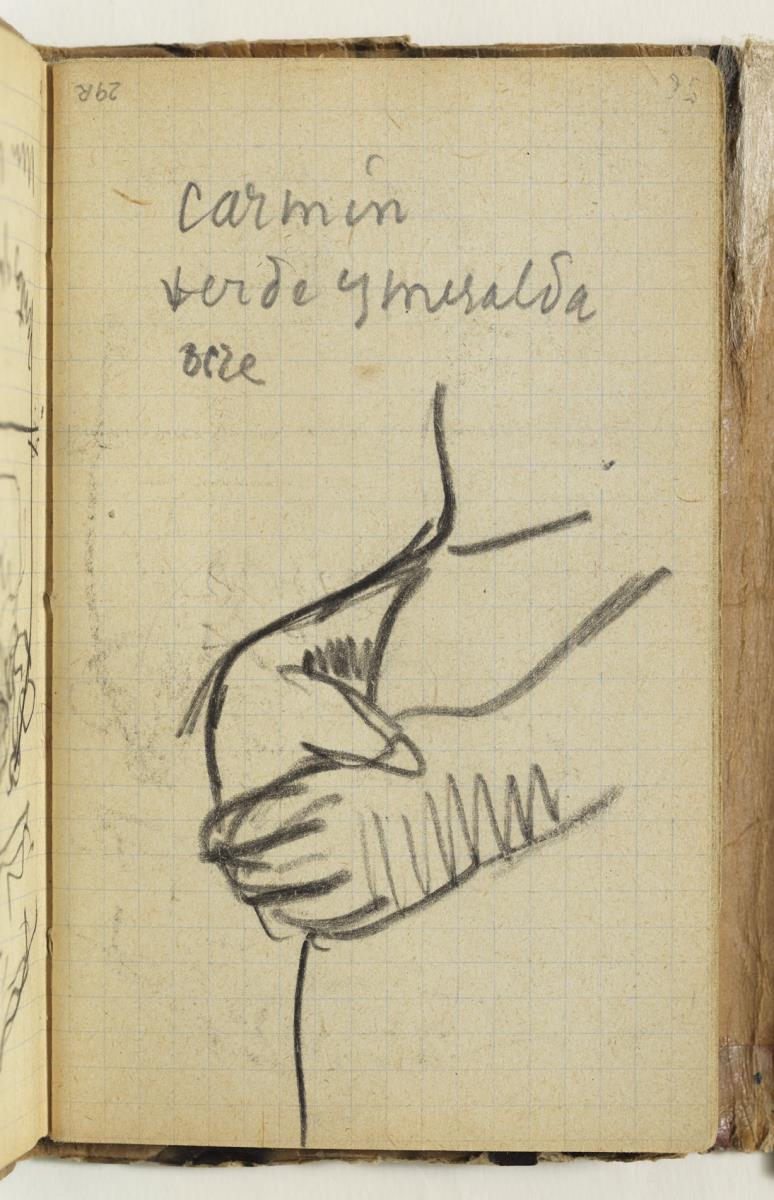 29R
Carmin
verde ysmeralda
ocre